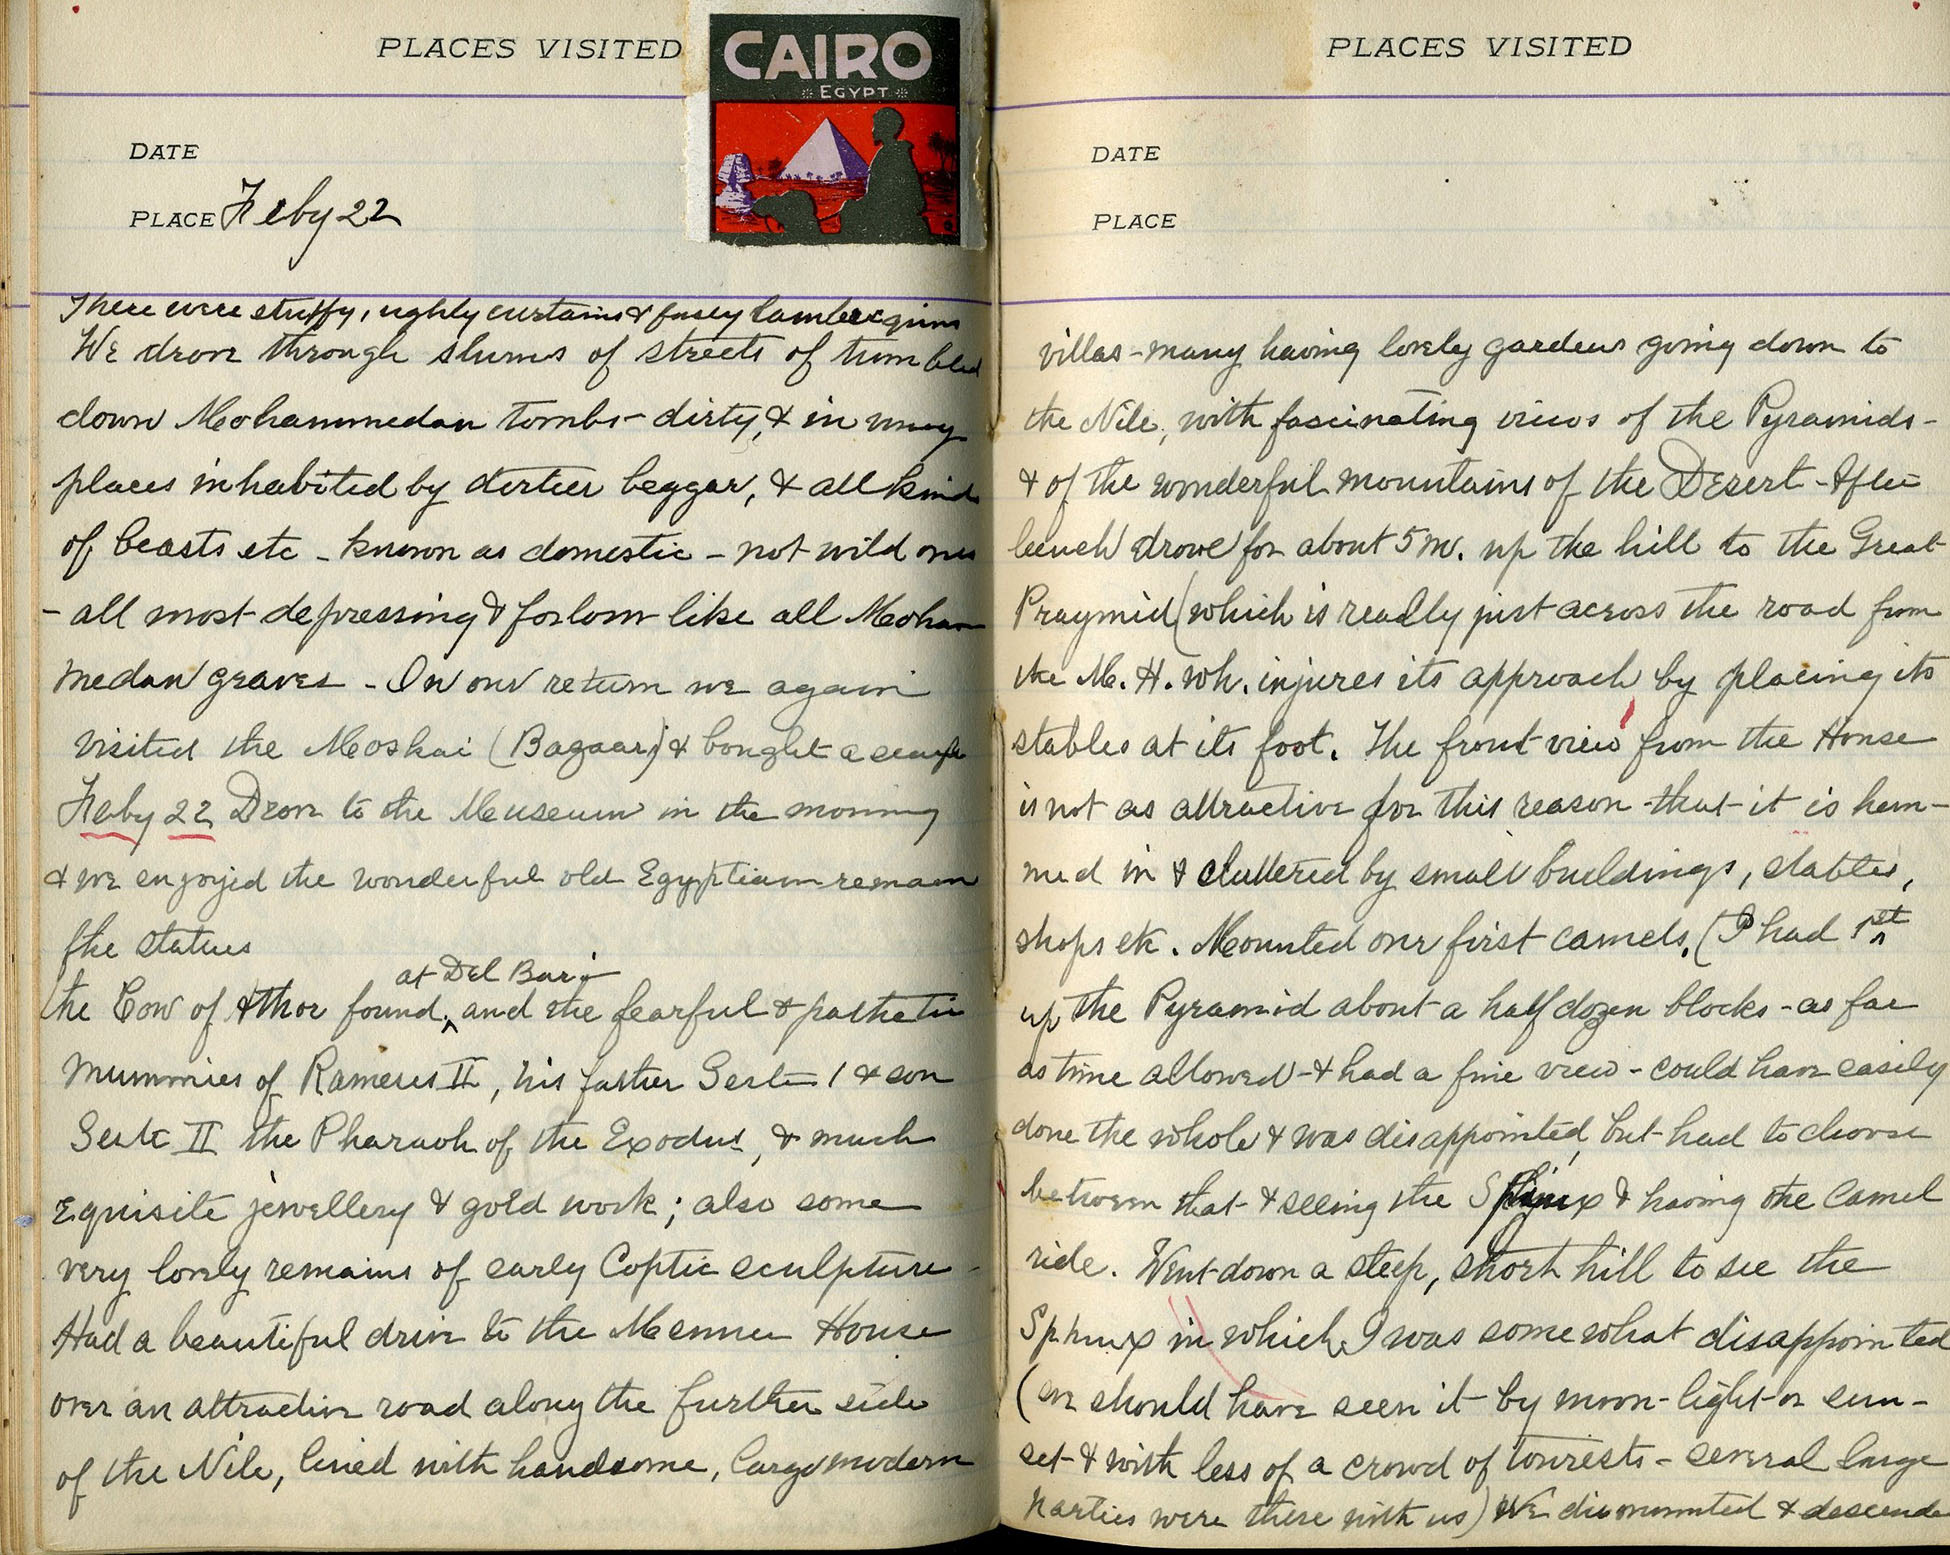 PLACES VISITED
CAIRO
EGYPT
DATE
PLACE Feby 22
There were stuffy, ughly curtains & fusey lambrequins
We drove through slums of streets of tumbled
down Mohammedan tombs - dirty, & in many
places inhabited by dirtier beggar, & all kinds
of beasts etc - known as domestic - not wild ones
- all most depressing & forlorn like all Moham
medan graves - On our return we again
visited the Moskai (Bagaar) & bought a scarf
Feby 22 Drove to the Museum in the morning
& we enjoyed the wonderful old Egyptian remain
the statues
the Cow of Athor found, at Del Bari and the fearful & pathetic
mummies of Rameses II, his father Seste 1 & son
Seste II the Pharaoh of the Exodus, & much
exquisite jewellery & gold work; also some
very lovely remains of early Coptic sculpture -
Had a beautiful drive to the Menner House
over an attractive road along the further side
of the Nile, lined with handsome, large modern
PLACES VISITED
DATE
PLACE
villas - many having lovely gardens going down to
the Nile, with fascinating views of the Pyramids -
& of the wonderful mountains of the Desert - After
lunch drove for about 5 m. up the hill to the Great
Praymid (which is really just across the road from
the M. H. wh. injures its approach by placing its
stables at its foot. The front view from the House
is not as attractive for this reason - that it is hem-
med in & cluttered by small buildings, stables,
shops etc. Mounted our first camels. (I had 1st
up the Pyramid about a half dozen blocks - as far
as time allowed - & had a fine view - could have easily
done the whole & was disappointed, but had to choose
between that & seeing the Sphinx & having the Camel
ride. Went down a steep, short hill to see the
Sphinx in which I was somewhat disappointed
(we should have seen it by moon-light or sun-
set - & with less of a crowd of tourists - several large
parties were there with us) We dismounted & descende